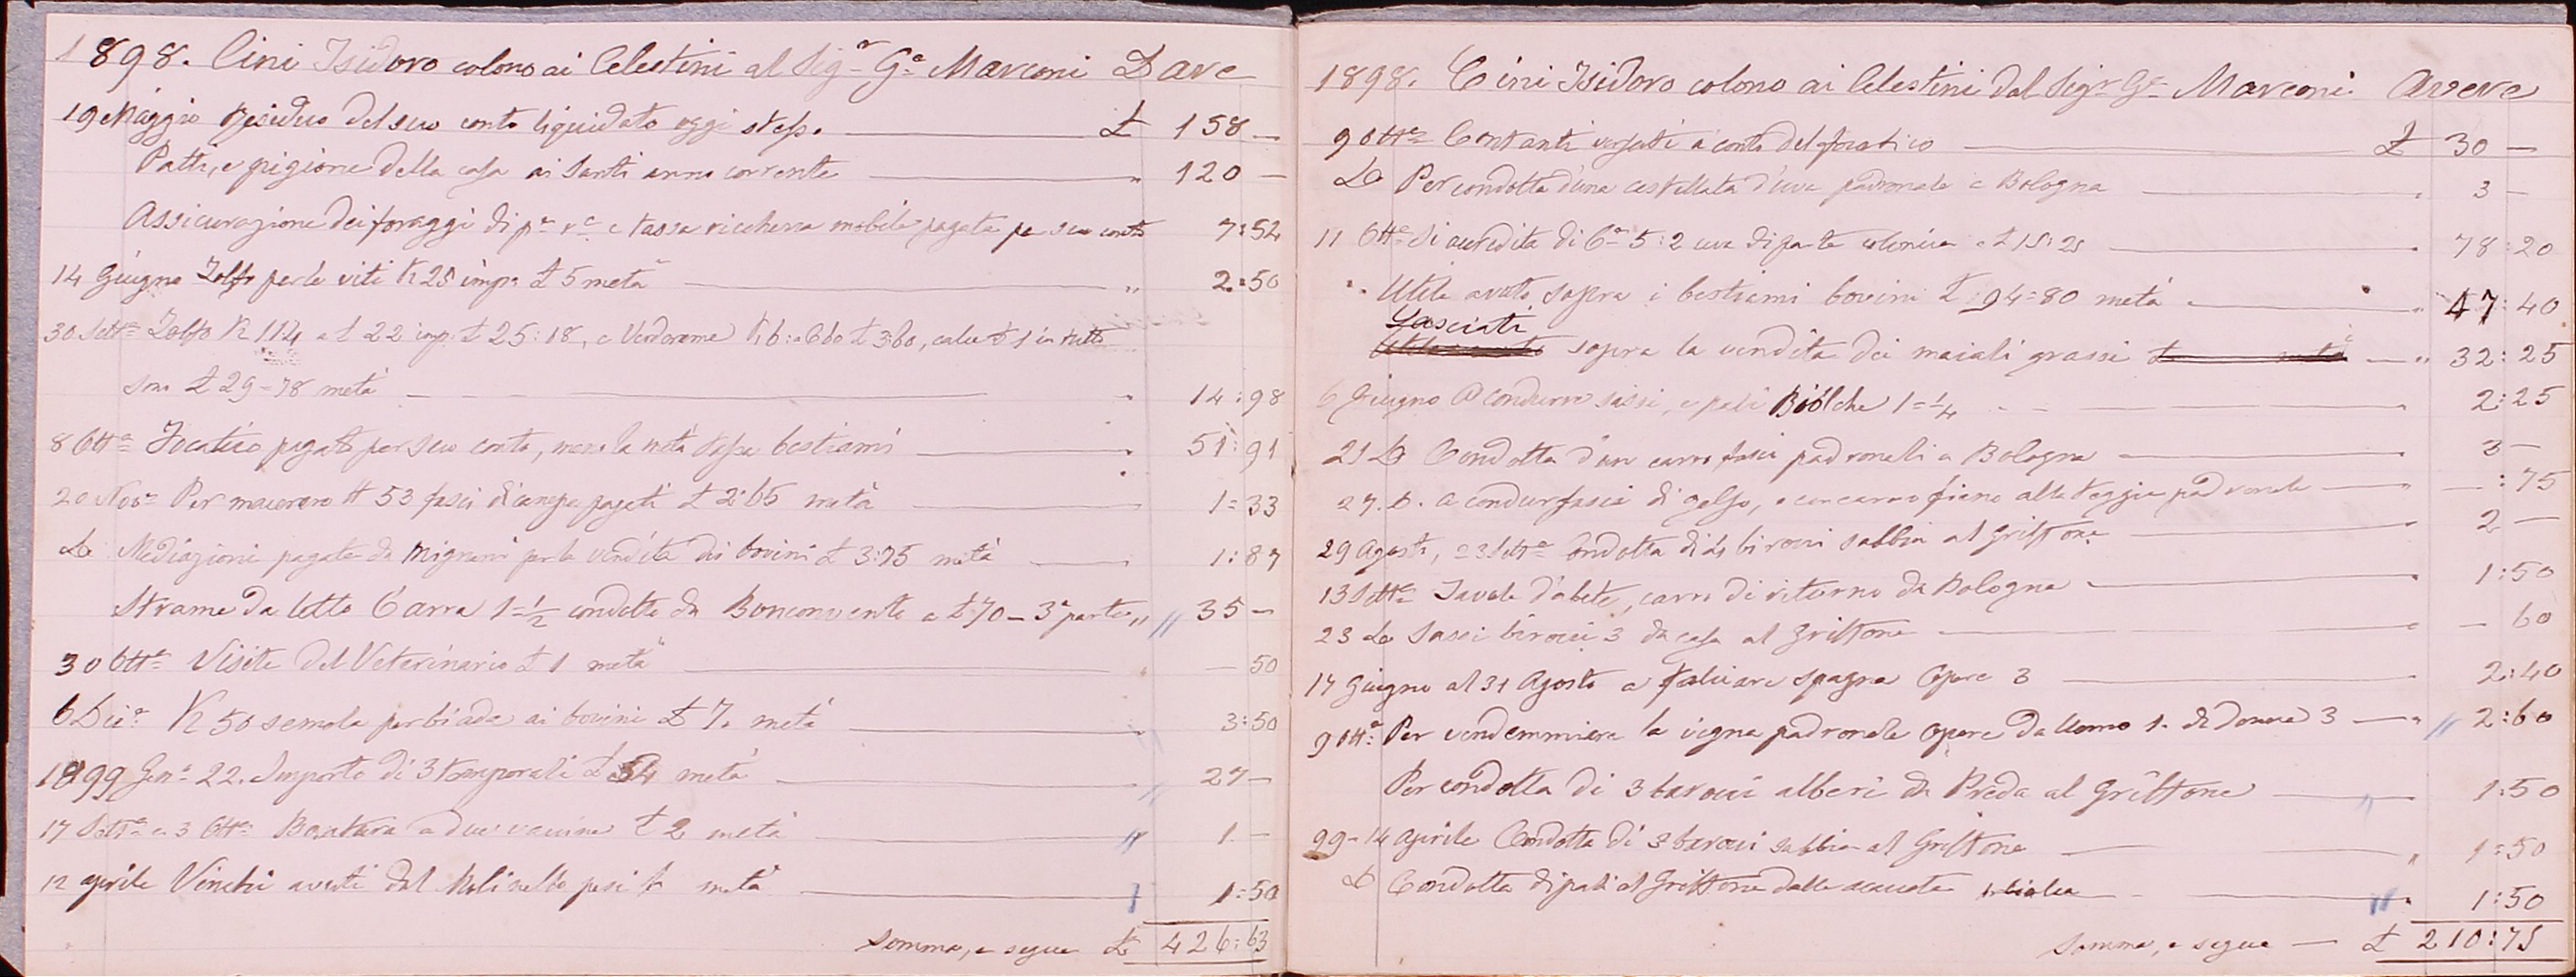 1898. Cini Isidoro colono ai Celestini al Sigr Ge Marconi Dare
19 Maggio Residuo del suo conto liquidato oggi stesso £ 158 —
Patti, e pigione della casa ai Santi anno corrente " 120 —
Assicurazione dei foraggi di pa ra e tassa ricchezza mobile pagata per suo conto 7:52
14 Giugno Zolfo per le viti K 25 impo £ 5 metà " 2:50
30 Sette Zolfo K 114 a £ 22 imp. £ 25:18, e Verderame K 6: a 60 £ 3:60, calce £ 1 in tutto
sono £ 29=78 metà " 14:98
8 Otte Focatico pagato per suo conto, meno la metà tassa bestiami " 51:91
20 Nove Per macerare N 53 fasci di canepa pagati £ 2:65 metà 1=33
Do Mediazioni pagate da Mignani per la vendita dei bovini £ 3:75 metà " 1:87
Strame da letto Carra 1=1/2 condotto da Bonconvento a £ 70 — 3a parte " 35 —
30 Otte Visite del Veterinario £ 1 metà " — 50
6 Dice K 50 semola per biada ai bovini £ 7. metà " 3:50
1899 Gene 22. Importo di 3 temporali £ 54 metà " 27 —
17 Sette e 3 Otte a due vaccine £ 2 metà " 1. —
12 aprile Vinchi avuti dal Molinello pesi metà 1:50
Somma, e segue £ 426:63
1898. Cini Isidoro colono ai Celestini dal Sigr Ge Marconi. Avere
9 Otte Contanti versati a conto del focatico £ 30 —
Do Per condotta d'una castellata d'uva padronale a Bologna " 3 —
11 Otte Si accredita di Ce 5:2 uva di parte colonica a £ 15:25 " 78:20
" Utile avuto sopra i bestiami bovini £ 94=80 metà " 47:40
Lasciati
sopra la vendita dei maiali grassi £ metà " 32:25
6 Giugno A condurre sassi, e pali Biolche 1=1/4 " 2:25
21 Do Condotta d'un carro fasci padronali a Bologna " 3 —
27. D. a condur fasci di gelso, e un carro fieno alla teggia padronale " — :75
29 Agosto, e 23 Sette Condotta di 4 birocci sabbia al Griffone 2 —
13 Sette Tavole d'abete, carro di ritorno da Bologna " 1:50
23 Do Sassi birocci 3 da casa al Griffone " — 60
17 Giugno al 31 Agosto a falciare spagna Opere 3 2:40
9 Otte Per vendemmiare la vigna padronale Opere da Uomo 1. da Donna 3 " 2:60
Per condotta di 3 barocci alberi da Preda al Griffone " 1:50
99-14 Aprile Condotta di 3 barocci sabbia al Griffone " 1=50
Do Condotta di pali al Griffone dalle 1 biolca " 1:50
Somma, e segue — £ 210:75